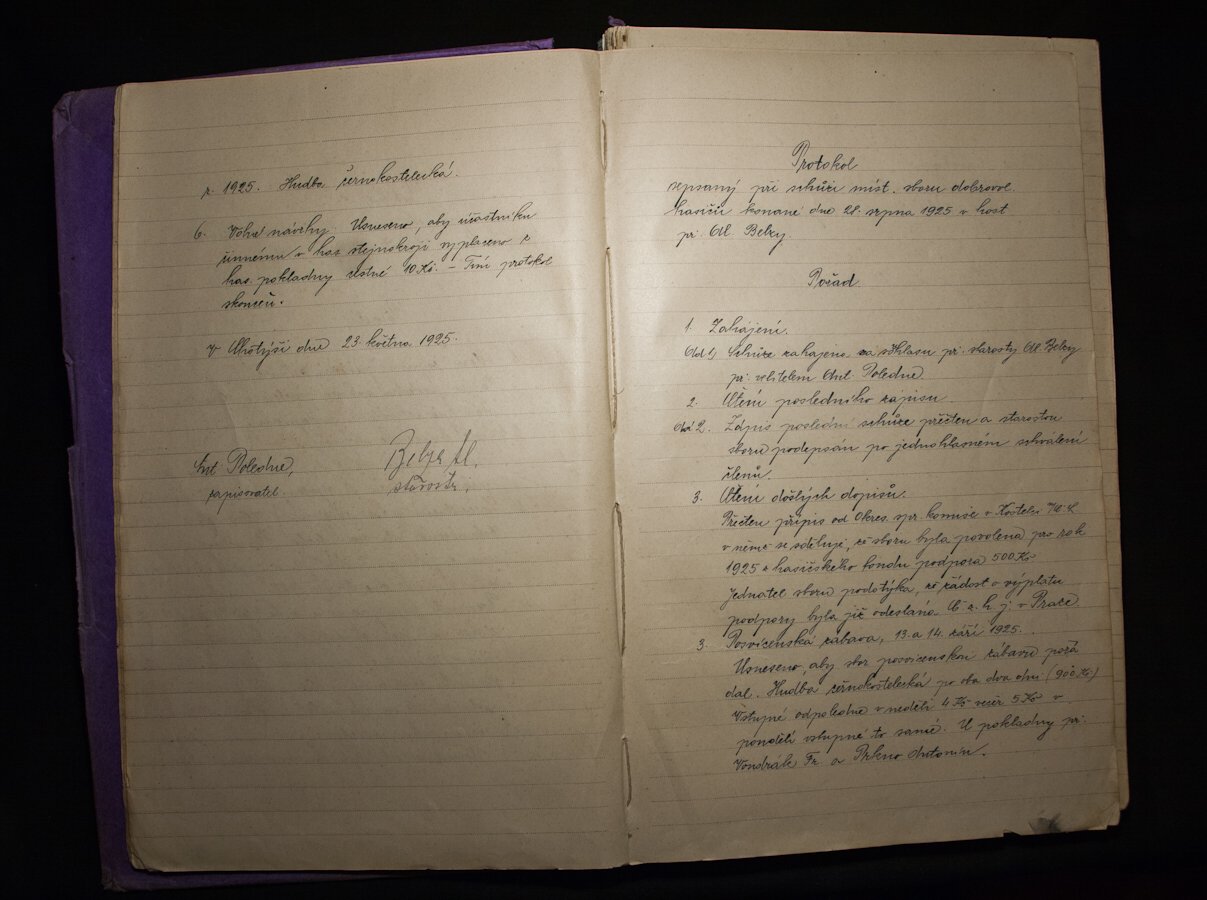 r. 1925. Hudba černokostelecká.
6. Volné návrhy. Usneseno, aby účastníku
činnému v has. stejnokroji vyplaceno z
has. pokladny cestné 10 Kč. – Tím protokol
skončen.
V Mhotýši dne 23. května 1925.
Ant Poledne,
zapisovatel.
Belza Al.
starosta.
Protokol
sepsaný při schůzi míst. sboru dobrovol.
hasičů konané dne 28. srpna 1925 v host
př. Al. Belzy.
Pořad.
1. Zahájení.
Ad 1) Schůze zahájena za souhlasu př. starosty Al. Belzy
př. velitelem Ant. Poledne.
2. Čtení posledního zápisu.
Ad 2. Zápis poslední schůze přečten a starostou
sboru podepsán po jednohlasném schválení
členů.
3. Čtení došlých dopisů.
Přečten přípis od Okres. spr. komise v Kostelci
v němž se sděluje, že sboru byla povolena pro rok
1925 z hasičského fondu podpora 500 Kč
Jednatel sboru podotýká, že žádost o výplatu
podpory byla již odeslána Č. z. h. j. v Praze.
3. Posvícenská zábava, 13. a 14. září 1925.
Usneseno, aby sbor posvícenskou zábavu pořá
dal. Hudba černokostelecká po oba dva dni (900 Kč)
Vstupné odpoledne v neděli 4 Kč večer 5 Kč v
pondělí vstupné to samé. U pokladny př.
Vondrák Fr. a Prkno Antonín.